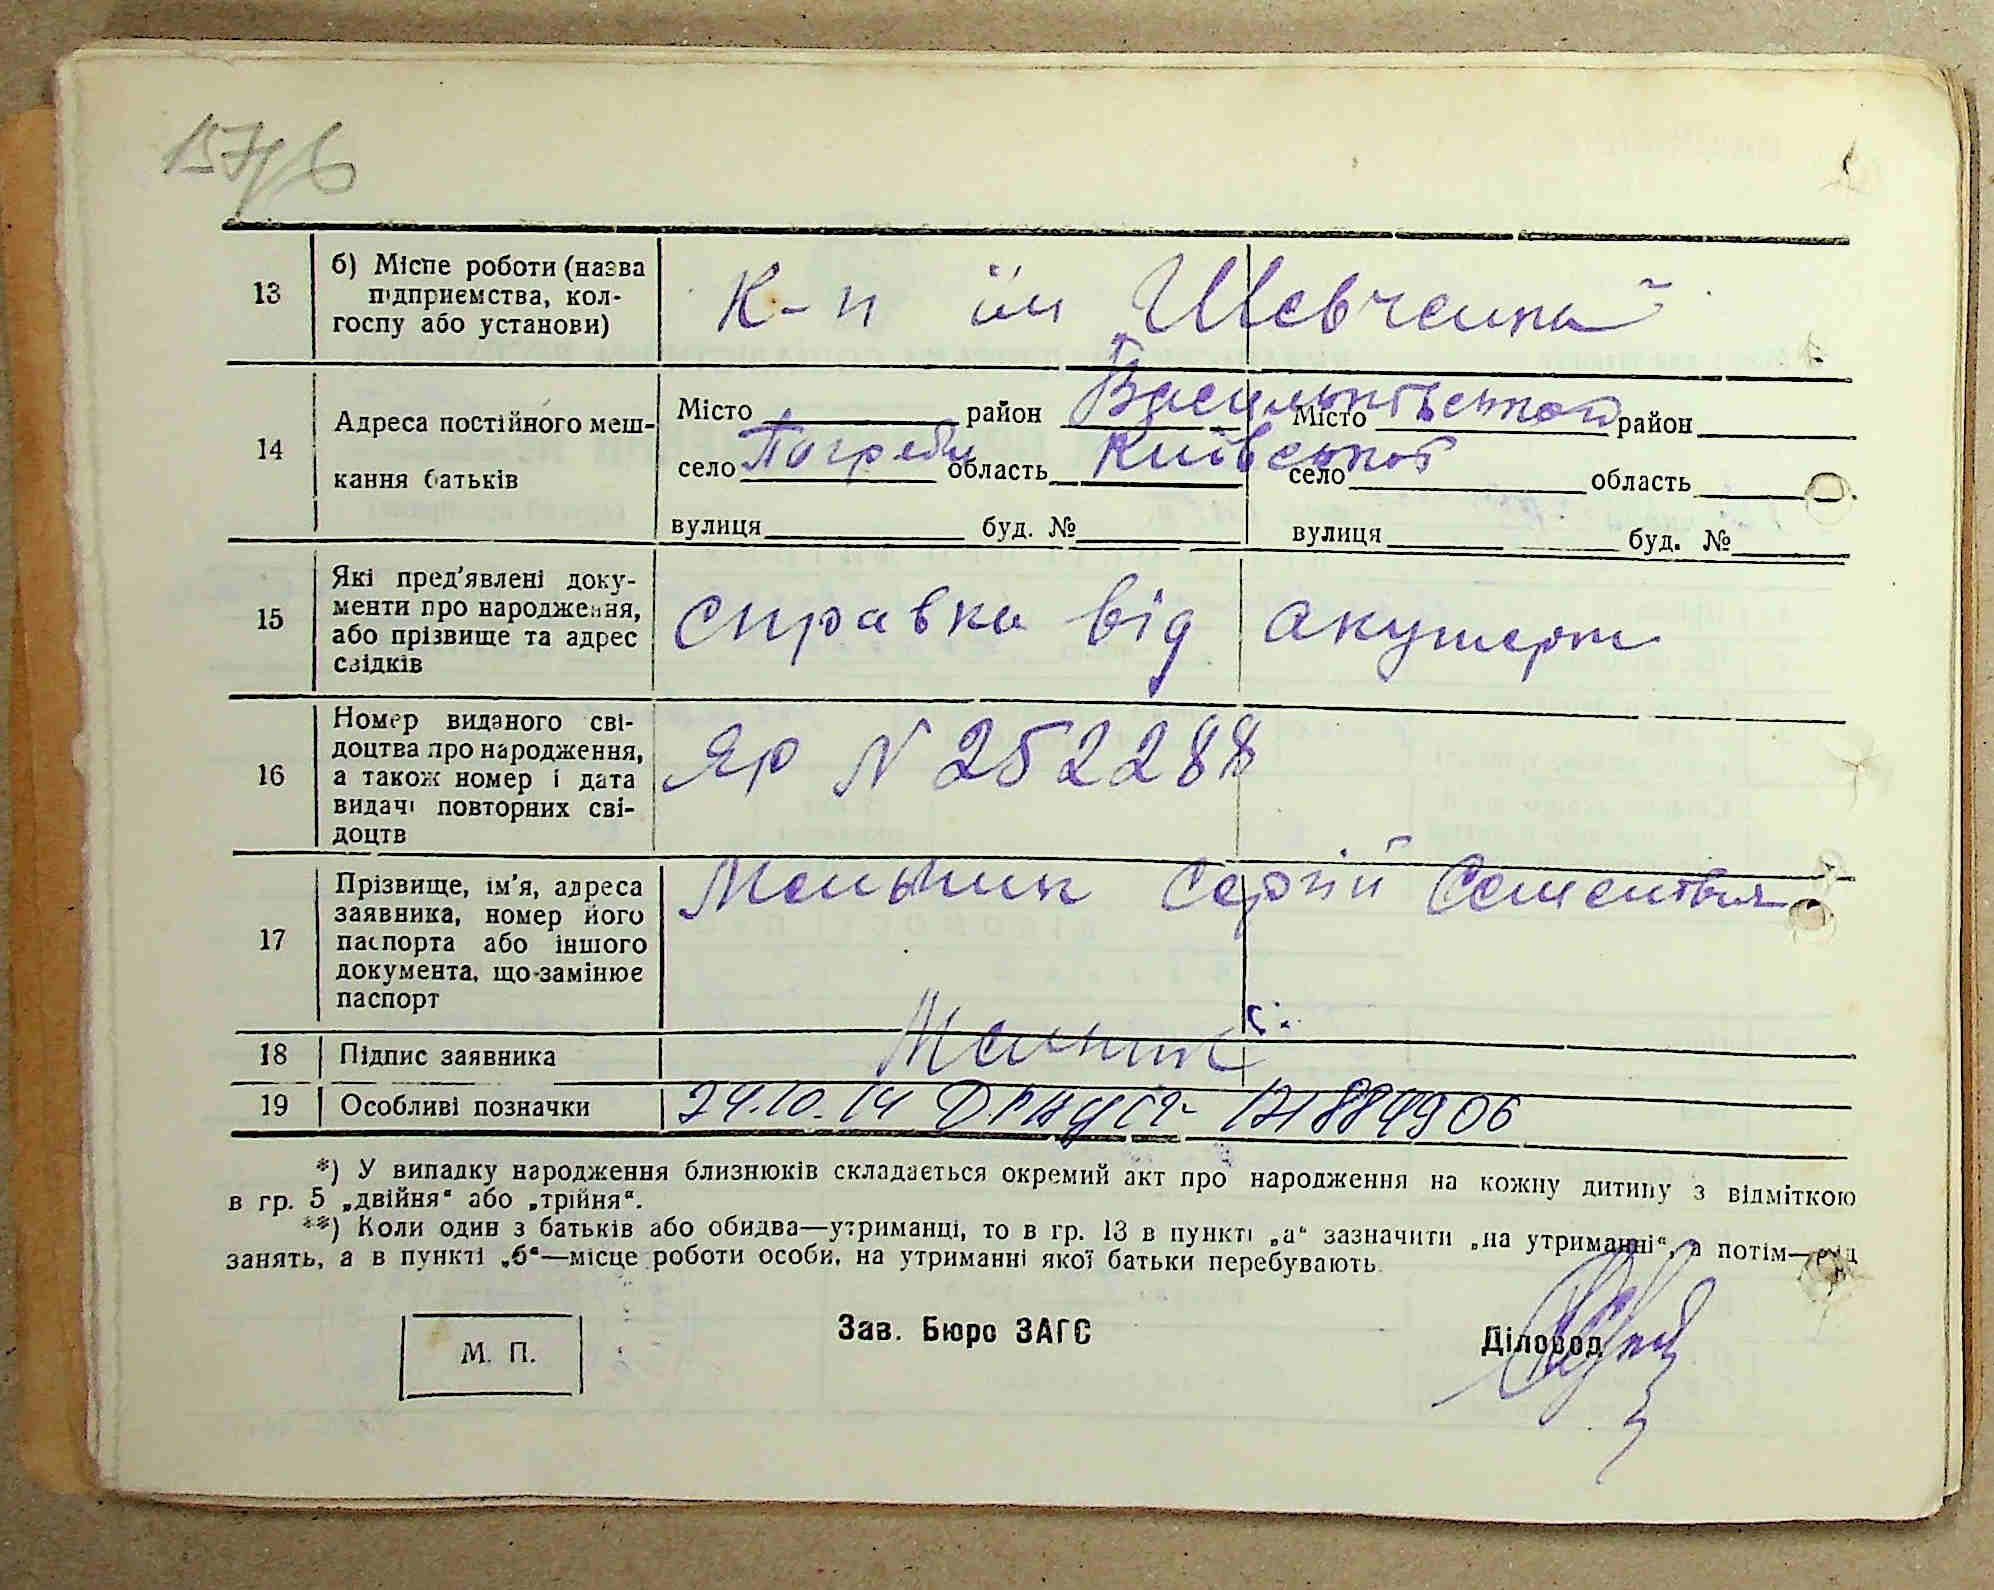 157зв
13
б) Місце роботи (назва
підприємства, кол-
госпу або установи)
К-п ім Шевченка
14
Адреса постійного меш-
кання батьків
Місто район Васильківської Місто район
село Погреби область Київської село область
вулиця буд. № вулиця буд. №
15
Які пред'явлені доку-
менти про народження,
або прізвище та адрес
свідків
справка від акушерки
16
Номер виданого сві-
доцтва про народження,
а також номер і дата
видачі повторних сві-
доцтв
Яр N 252288
17
Прізвище, ім'я, адреса
заявника, номер його
паспорта або іншого
документа, що замінює
паспорт
Мельник Сергій Сементвия
18
Підпис заявника
Мелник
19
Особливі позначки
24.10.14 ДРАЦСГ- 121884906
*) У випадку народження близнюків складається окремий акт про народження на кожну дитину з відміткою
в гр. 5 „двійня“ або „трійня“.
**) Коли один з батьків або обидва—утриманці, то в гр. 13 в пункті „а“ зазначити „на утриманні“, а потім—рід
занять, а в пункті „б“—місце роботи особи, на утриманні якої батьки перебувають.
М. П.
Зав. Бюро ЗАГС
Діловод